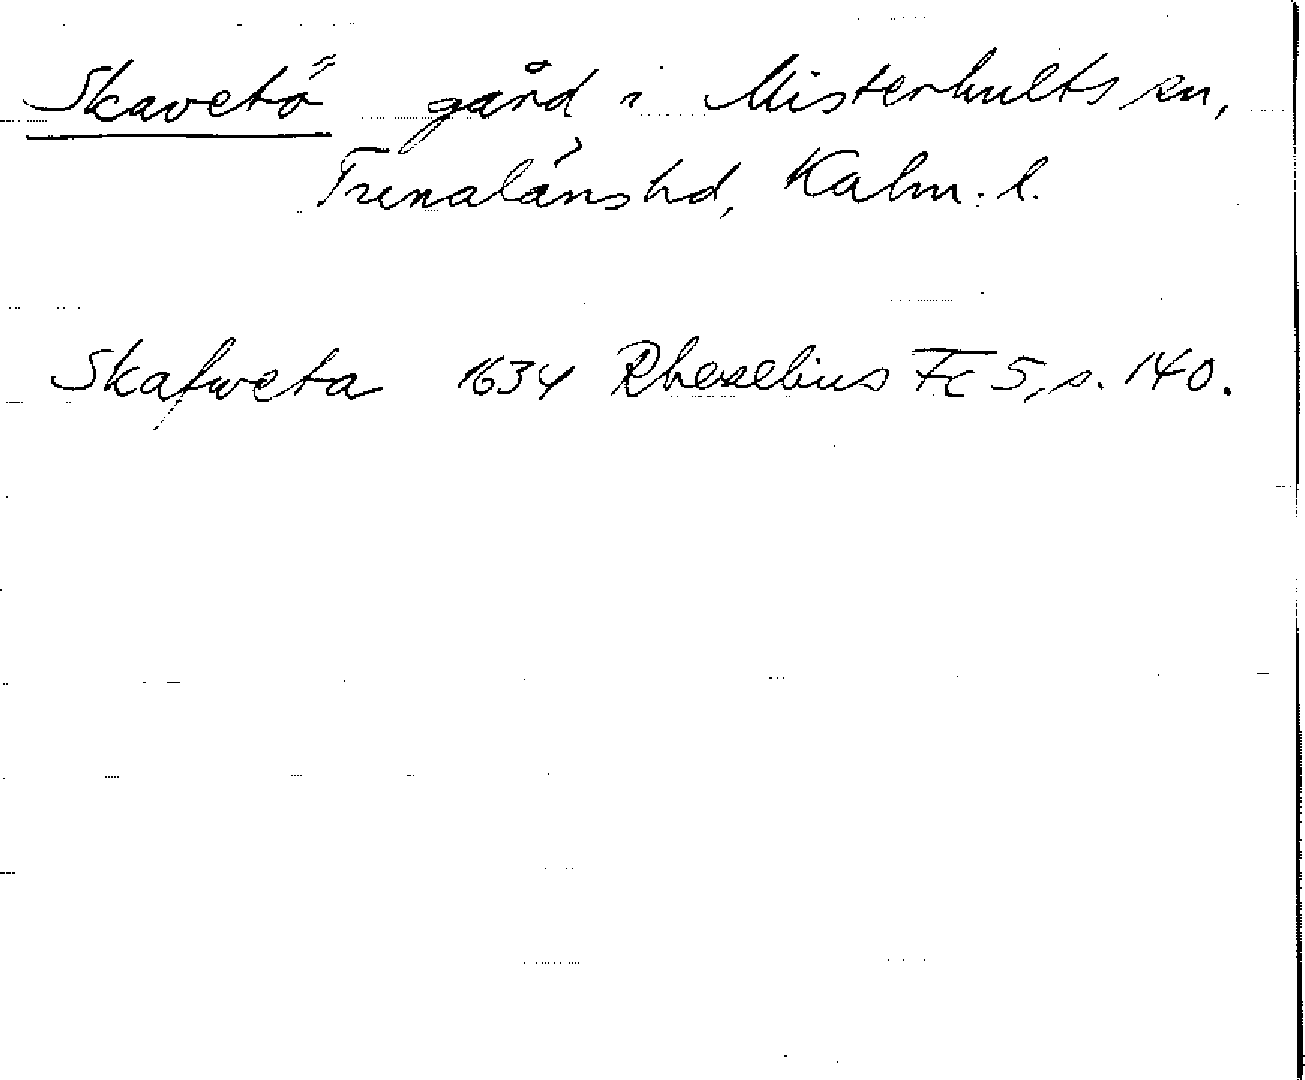 Skavetö gård i Misterhults sn,
Tunaläns hd, Kalm. l.
Skafweta 1634 Rhezelius Fc 5, s. 140.